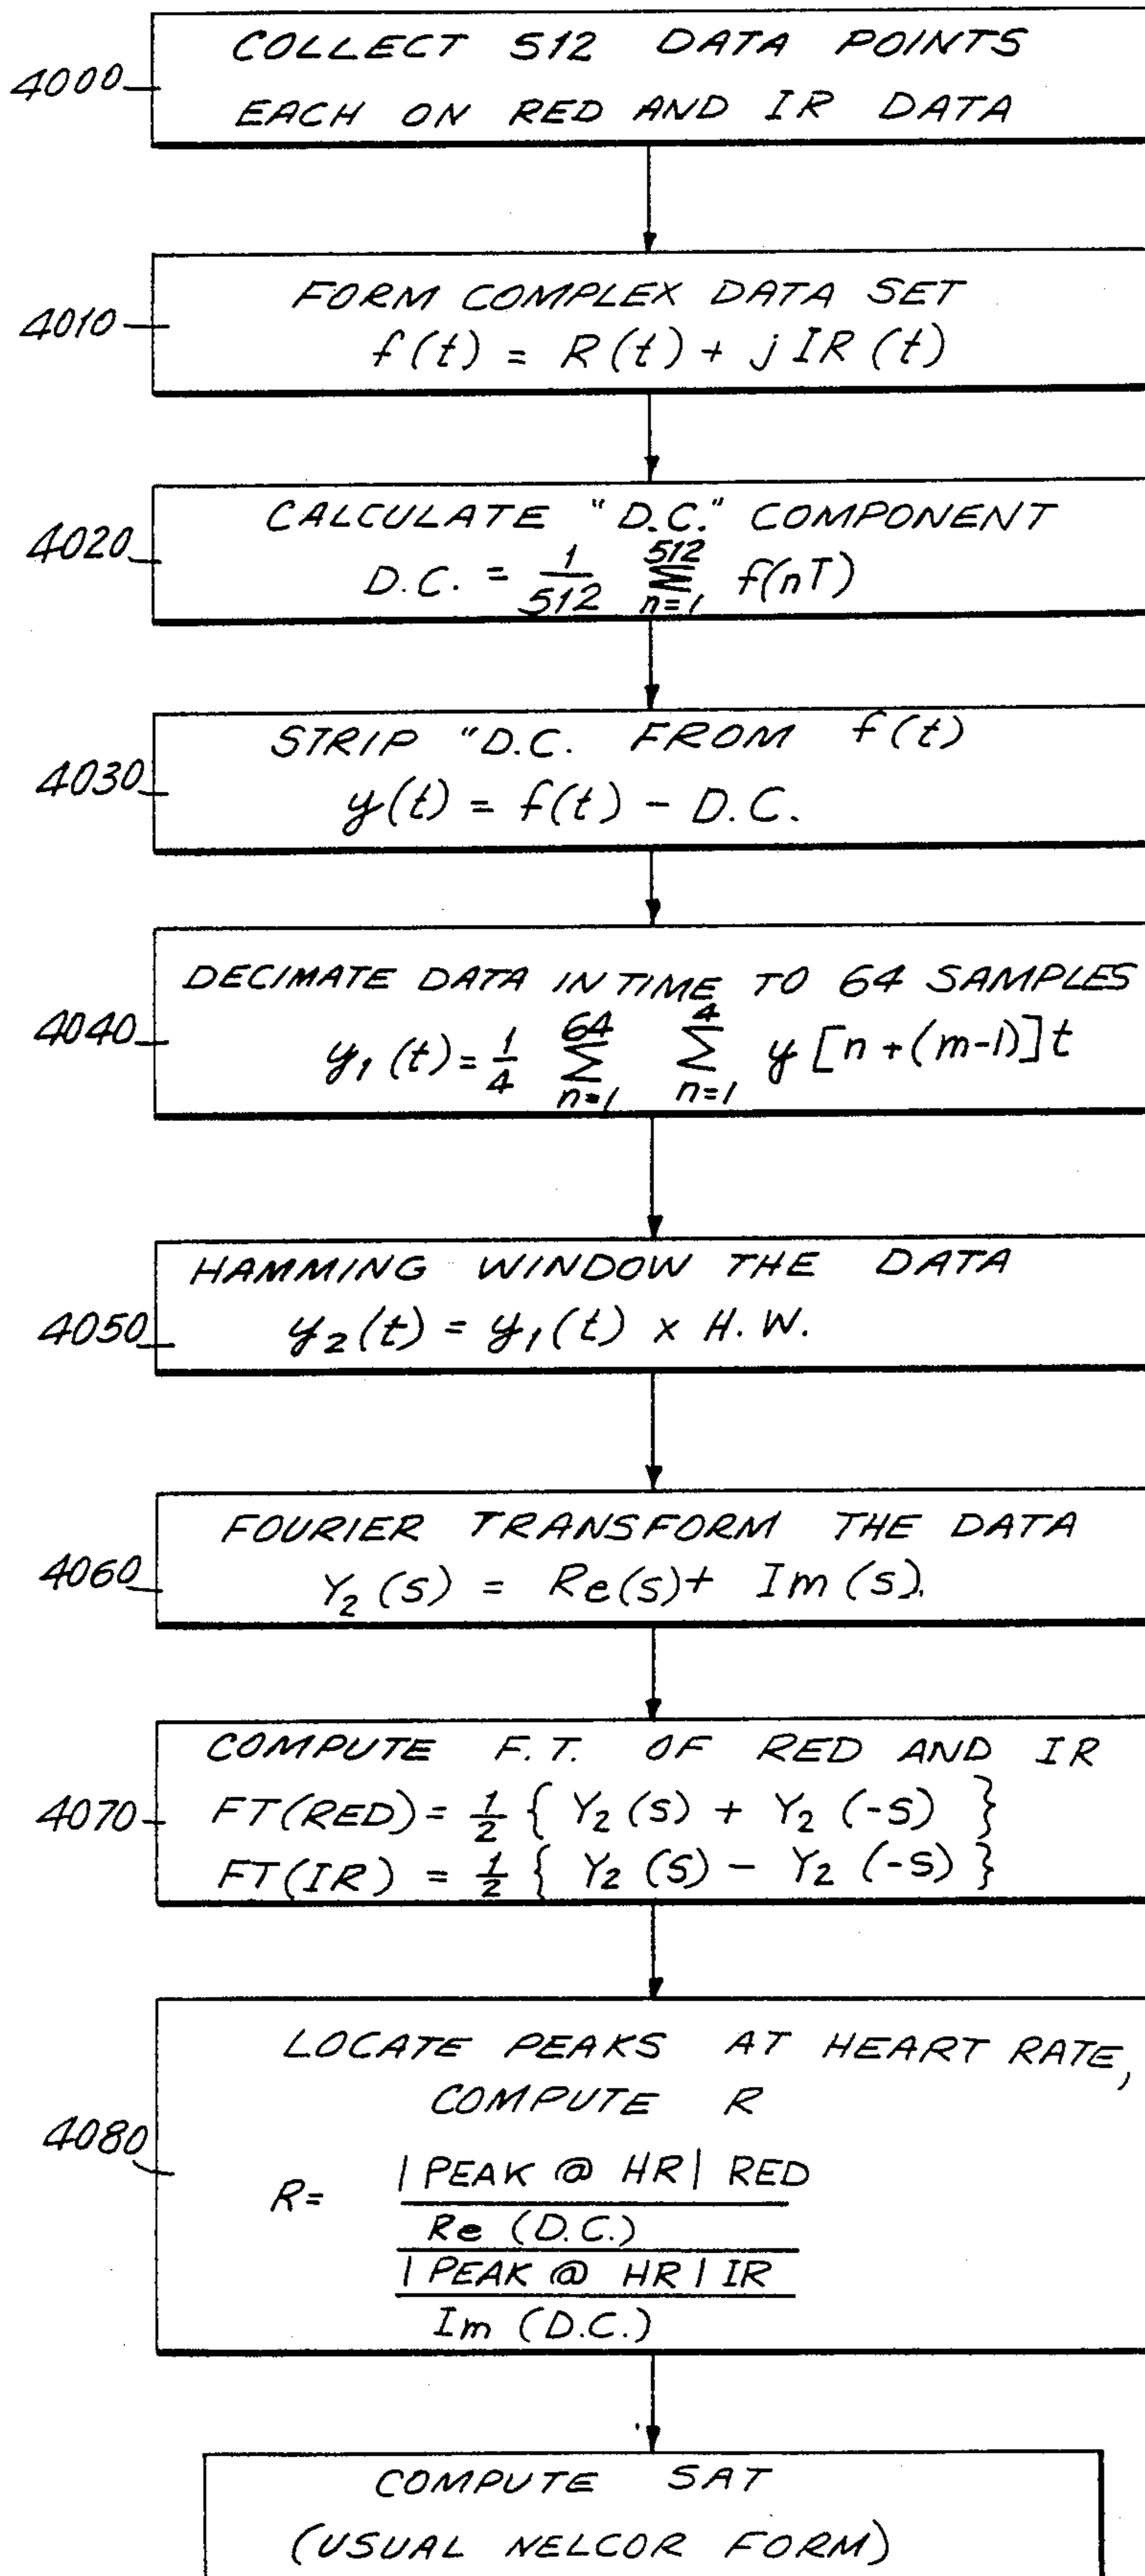 4000
COLLECT 512 DATA POINTS
EACH ON RED AND IR DATA
4010
FORM COMPLEX DATA SET
f(t) = R(t) + jIR(t)
4020
CALCULATE "D.C." COMPONENT
D.C. = 1/512 512 Σ n=1 f(nT)
4030
STRIP "D.C. FROM f(t)
y(t) = f(t) - D.C.
4040
DECIMATE DATA IN TIME TO 64 SAMPLES
y₁(t) = 1/4 64 Σ n=1 4 Σ n=1 y[n+(m-1)]t
4050
HAMMING WINDOW THE DATA
y₂(t) = y₁(t) x H.W.
4060
FOURIER TRANSFORM THE DATA
Y₂(s) = Re(s) + Im(s).
4070
COMPUTE F.T. OF RED AND IR
FT(RED) = 1/2 { Y₂(s) + Y₂(-s) }
FT(IR) = 1/2 { Y₂(s) - Y₂(-s) }
4080
LOCATE PEAKS AT HEART RATE,
COMPUTE R
R=
|PEAK @ HR| RED
Re (D.C.)
|PEAK @ HR| IR
Im (D.C.)
COMPUTE SAT
(USUAL NELCOR FORM)